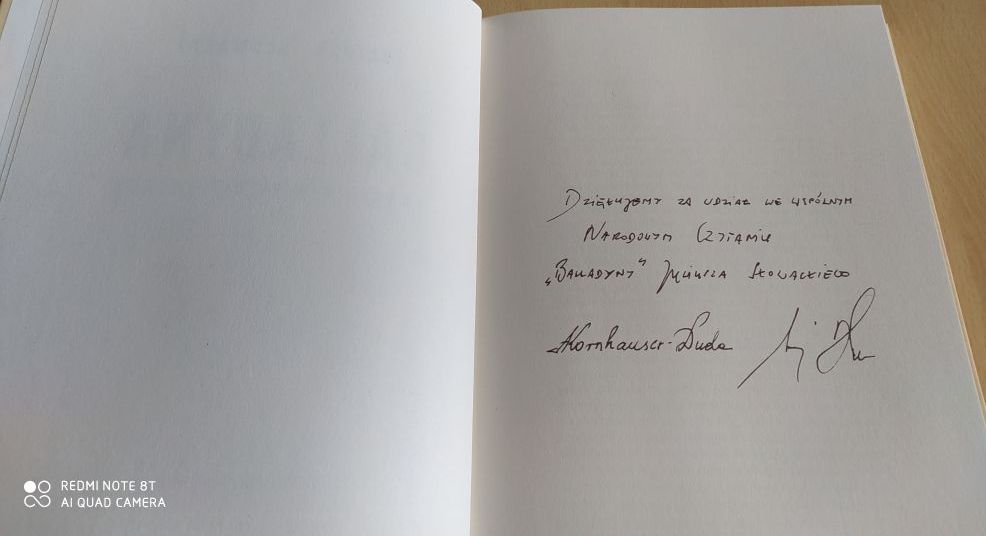 Dziękujemy za udział we wspólnym
Narodowym Czytaniu
„Balladyny" Juliusza Słowackiego
AKornhauser-Duda
REDMI NOTE 8T
AI QUAD CAMERA